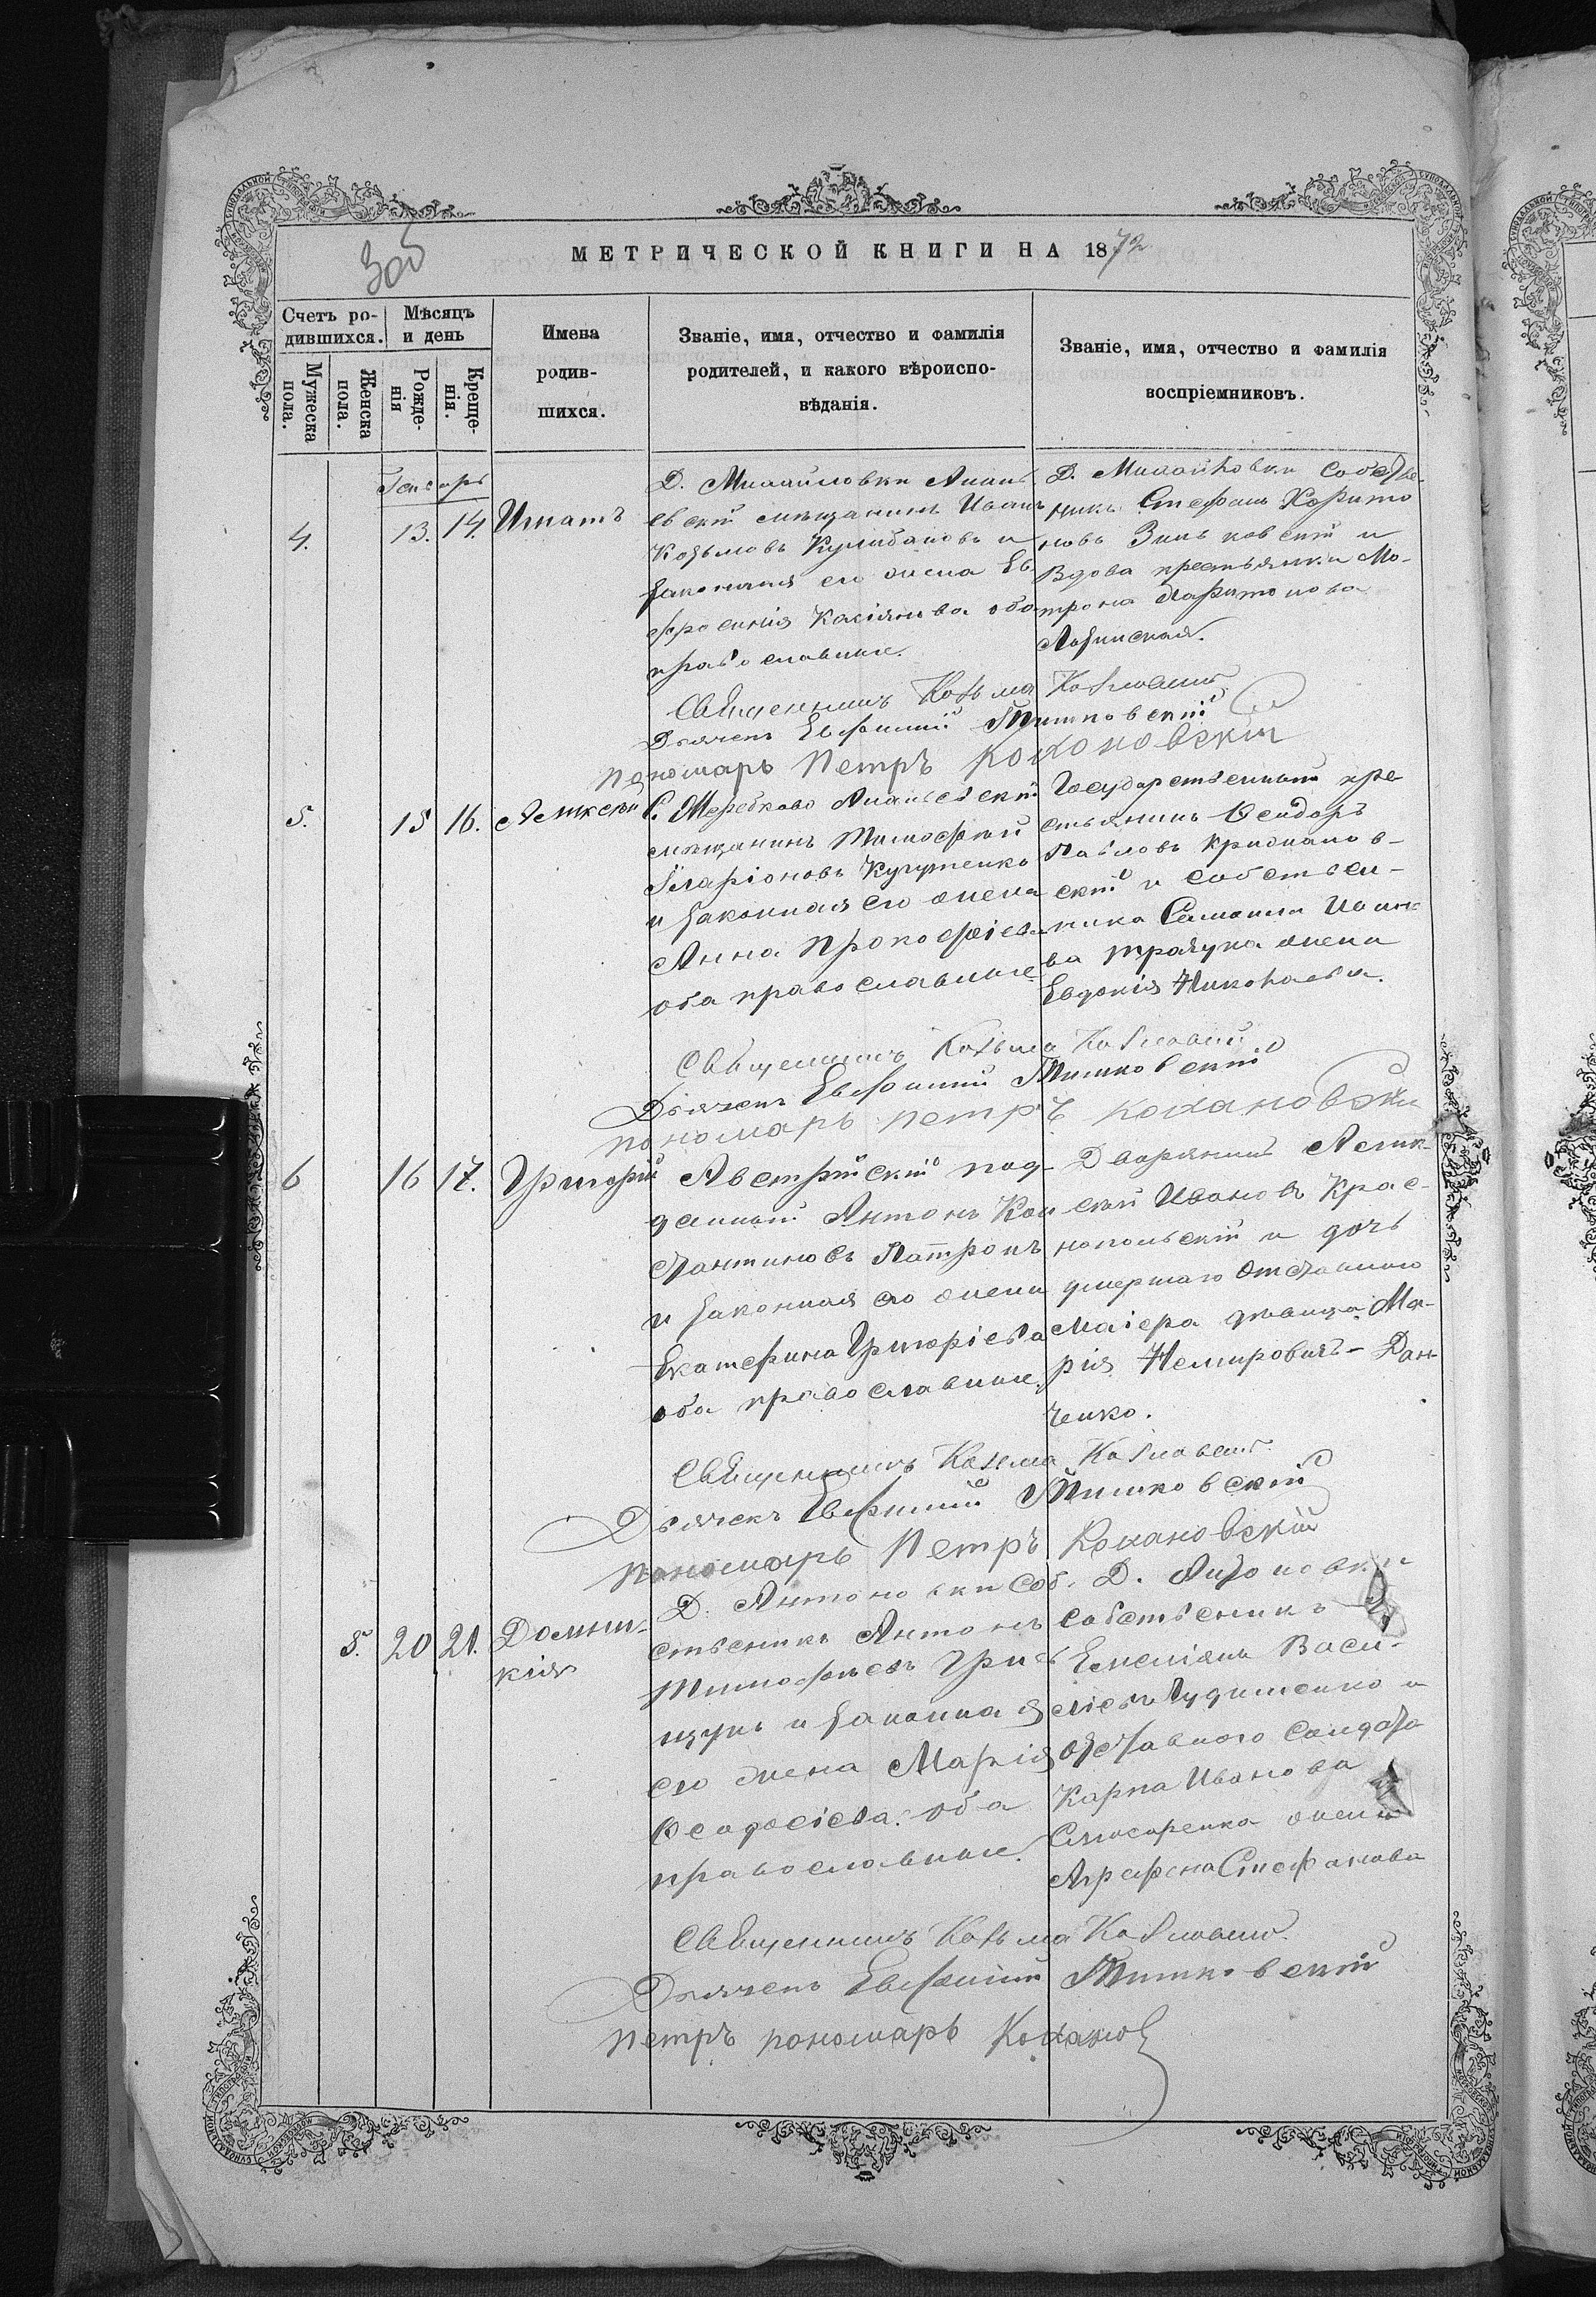 МЕТРИЧЕСКОЙ КНИГИ НА 1872
Счетъ ро-
дившихся.
Мѣсяцъ
и день
Мужеска
пола.
Женска
пола.
Рожде-
нія
Креще-
нія.
Имена
родив-
шихся.
Званіе, имя, отчество и фамилія
родителей, и какого вѣроиспо-
вѣданія.
Званіе, имя, отчество и фамилія
воспріемниковъ.
Генварь
4.
13. 14.
Игнатъ
Д. Михайловки Анань
евскій мѣщанинъ Иванъ
Козьмовъ и
законная его жена Ев
фросинія Касіянова оба
православные.
Д. Михайловки Собстве
никъ Стефанъ Харито
новъ Зиньковскій и
Вдова крестьянка Мо-
трона Харитонова
Священникъ Козьма
Дьячекъ Евфимій Тишковскій
пономарь Петръ Кохановскій
5.
15 16.
Алексѣй
С. Мережково Ананьевскій
мѣщанинъ Тимофѣй
Иларіоновъ
и законная его жена
Анна Прокофіева
оба православные
Государственный кре
стьянинъ Феидоръ
Павловъ
скій и собствен-
ника Самоила Ивано
ва жена
Евдокія Николаева.
Священникъ Козьма
Дьячекъ Евфимій Тишковскій
пономарь петръ Кохановскій
6
16 17.
Григорій
Австрійскій под-
данный Антонъ Кон
стантиновъ Патронъ
и законная его жена
Екатерина Григоріева
оба православные.
Дворянинъ Алек-
сѣй Ивановъ Крас-
нопольскій и дочь
умершаго Отставного
Маіера дѣвица Ма-
рія Немировичъ-Дан
ченко.
Священникъ Козьма
Дьячекъ Евфимій Тишковскій
пономарь Петръ Кохановскій
5.
20 21.
Домни-
кія
Д. Антоновки Соб.
ственикъ Антонъ
Тимофѣевъ Гри
щукъ и законная
его жена Марія
Феодосіева: оба
православные.
Д. Антоновки
Собственикъ
Емеліянъ Васи-
ліевъ и
Отставного Солдата
Карпа Иванова
Слюсаренка жена
Агрефена Стефанова
Священникъ Козьма
Дьячекъ Евфимій Тишковскій
петръ пономарь Коханов